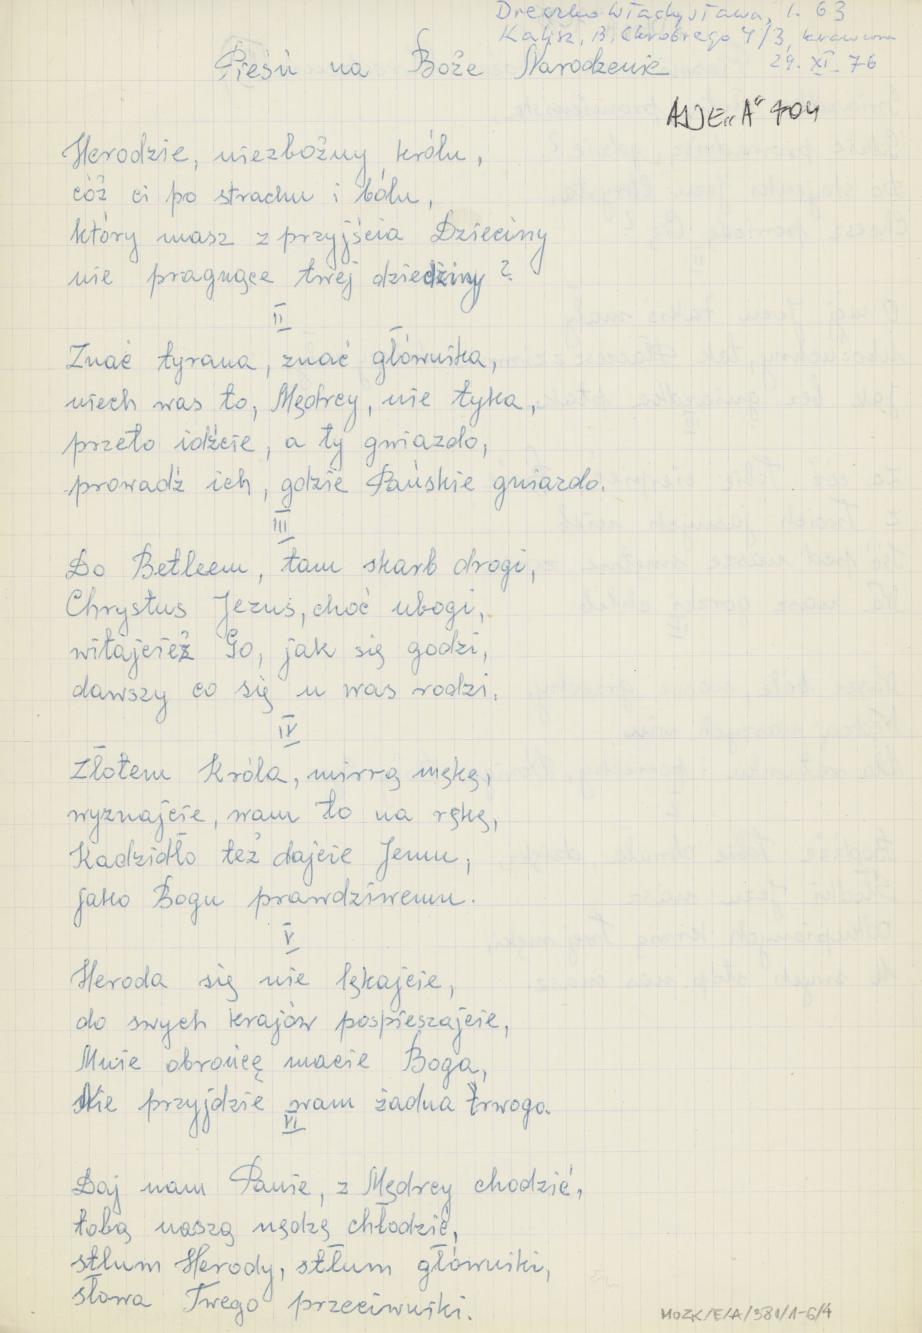 Dreczko Władysława, l. 63
Kalisz, B. Chrobrego 4/3, krawcowa
29. XI. 76
Pieśń na Boże Narodzenie
AIJE „A" 704
Herodzie, niezbożny królu,
cóż ci po strachu i bólu,
który masz z przyjścia Dzieciny
nie pragnące twej dziedziny?
II
Znać tyrana, znać głównika,
niech was to, Mędrcy, nie tyka,
przeto idźcie, a ty gwiazdo,
prowadź ich, gdzie Pańskie gniazdo.
III
Do Betleem, tam skarb drogi,
Chrystus Jezus, choć ubogi,
witajcież Go, jak się godzi,
dawszy co się u was rodzi.
IV
Złotem Króla, mirrą mękę,
wyznajcie, wam to na rękę,
Kadzidło też dajcie Jemu,
jako Bogu prawdziwemu.
V
Heroda się nie lękajcie,
do swych krajów pospieszajcie,
Mnie obrońcę macie Boga,
Nie przyjdzie wam żadna trwoga.
VI
Daj nam Panie, z Mędrcy chodzić,
tobą naszą nędzę chłodzić,
stłum Herody, stłum główniki,
słowa Twego przeciwniki.
MOZK/E/A/381/1-6/4